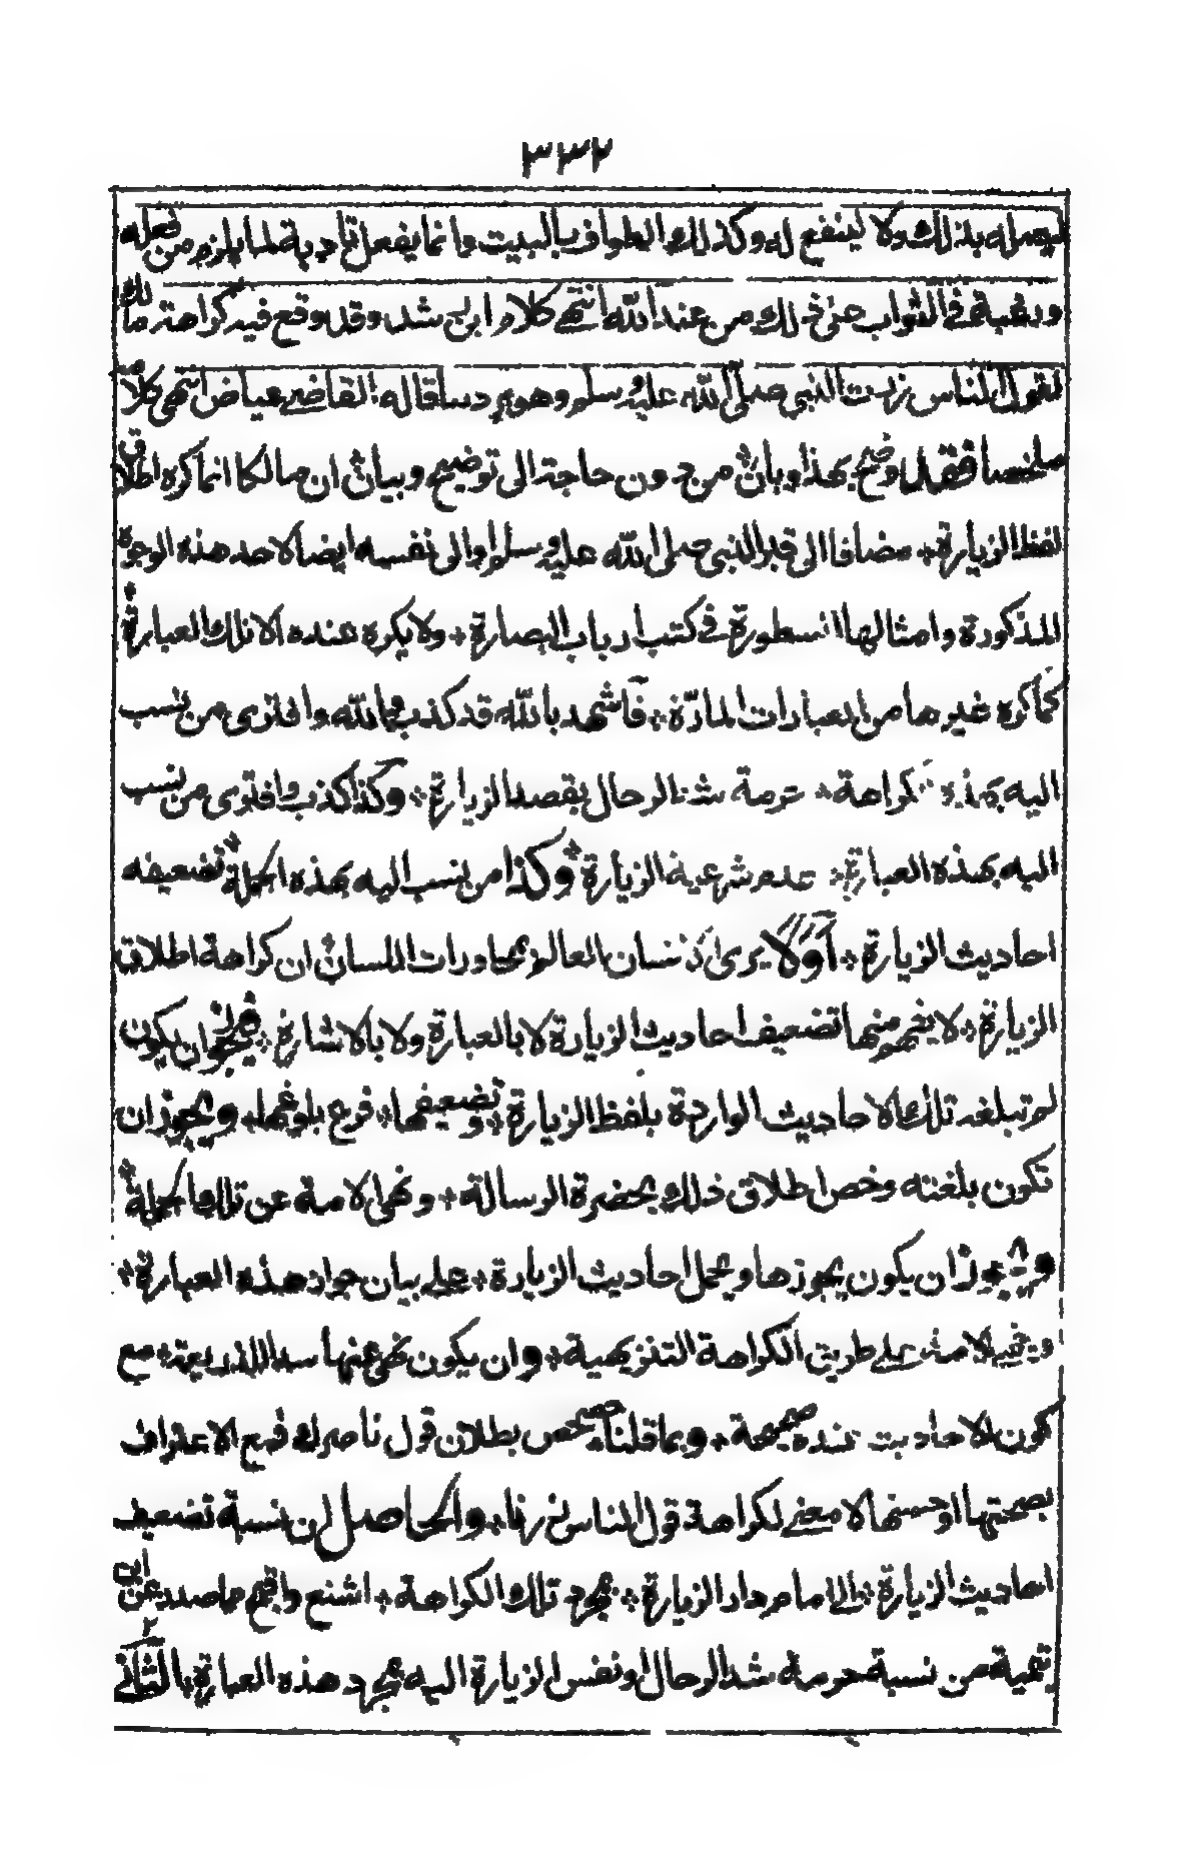 ٣٣٢
ليصله بذلك ولا لينفع له وكذلك الطواف بالبيت وانما يفعل تأدية لما يلزم من فعله
ورغبة في الثواب على ذلك من عند الله انتهى كلام ابن رشد وقد وقع فيه كراهة مالك
لقول الناس زرت النبي صلى الله عليه وسلم وهو يرد ما قاله القاضي عياض انتهى كلامه
ملخصا فقد وضح بهذا وبان من دون حاجة الى توضيح وبيان ان مالكا انما كره اطلاق
لفظ الزيارة مضافا الى قبر النبي صلى الله عليه وسلم او الى نفسه ايضا لاحد هذه الوجوه
المذكورة وامثالها المسطورة في كتب ارباب البصارة ولا يكره عنده الا تلك العبارة
كما كره غيرها من العبارات المارّة فاشهد بالله قد كذب والله وافترى من نسب
اليه بهذه الكراهة حرمة شد الرحال بقصد الزيارة وكذا كذب وافترى من نسب
اليه بهذه العبارة عدم شرعية الزيارة وكذا من نسب اليه بهذه الجملة تضعيف
احاديث الزيارة أَوَلا يرى كل انسان العالم بمحاورات اللسان ان كراهة اطلاق
الزيارة لا يفهم منها تضعيف احاديث الزيارة لا بالعبارة ولا بالاشارة فيجوز ان يكون
لم تبلغه تلك الاحاديث الواردة بلفظ الزيارة وتضعيفها فرع بلوغها ويجوز ان
تكون بلغته وخص اطلاق ذلك بحضرة الرسالة ونهى الامة عن تلك الجملة
ويجوز ان يكون يجوزها ويحمل احاديث الزيارة على بيان جواز هذه العبارة
على طريق الكراهة التنزيهية وان يكون نهى عنها سدا للذريعة مع
كون الاحاديث عنده صحيحة وبما قلنا حصحص بطلان قول ناصرك فمع الاعتراف
بصحتها او حسنها لا معنى لكراهة قول الناس زرنا والحاصل ان نسبة تضعيف
احاديث الزيارة الى امام دار الزيارة بمجرد تلك الكراهة اشنع واقبح مما صدر عن ابن
تيمية من نسبة حرمة شد الرحال او نفس الزيارة اليه بمجرد هذه العبارة بالثاني